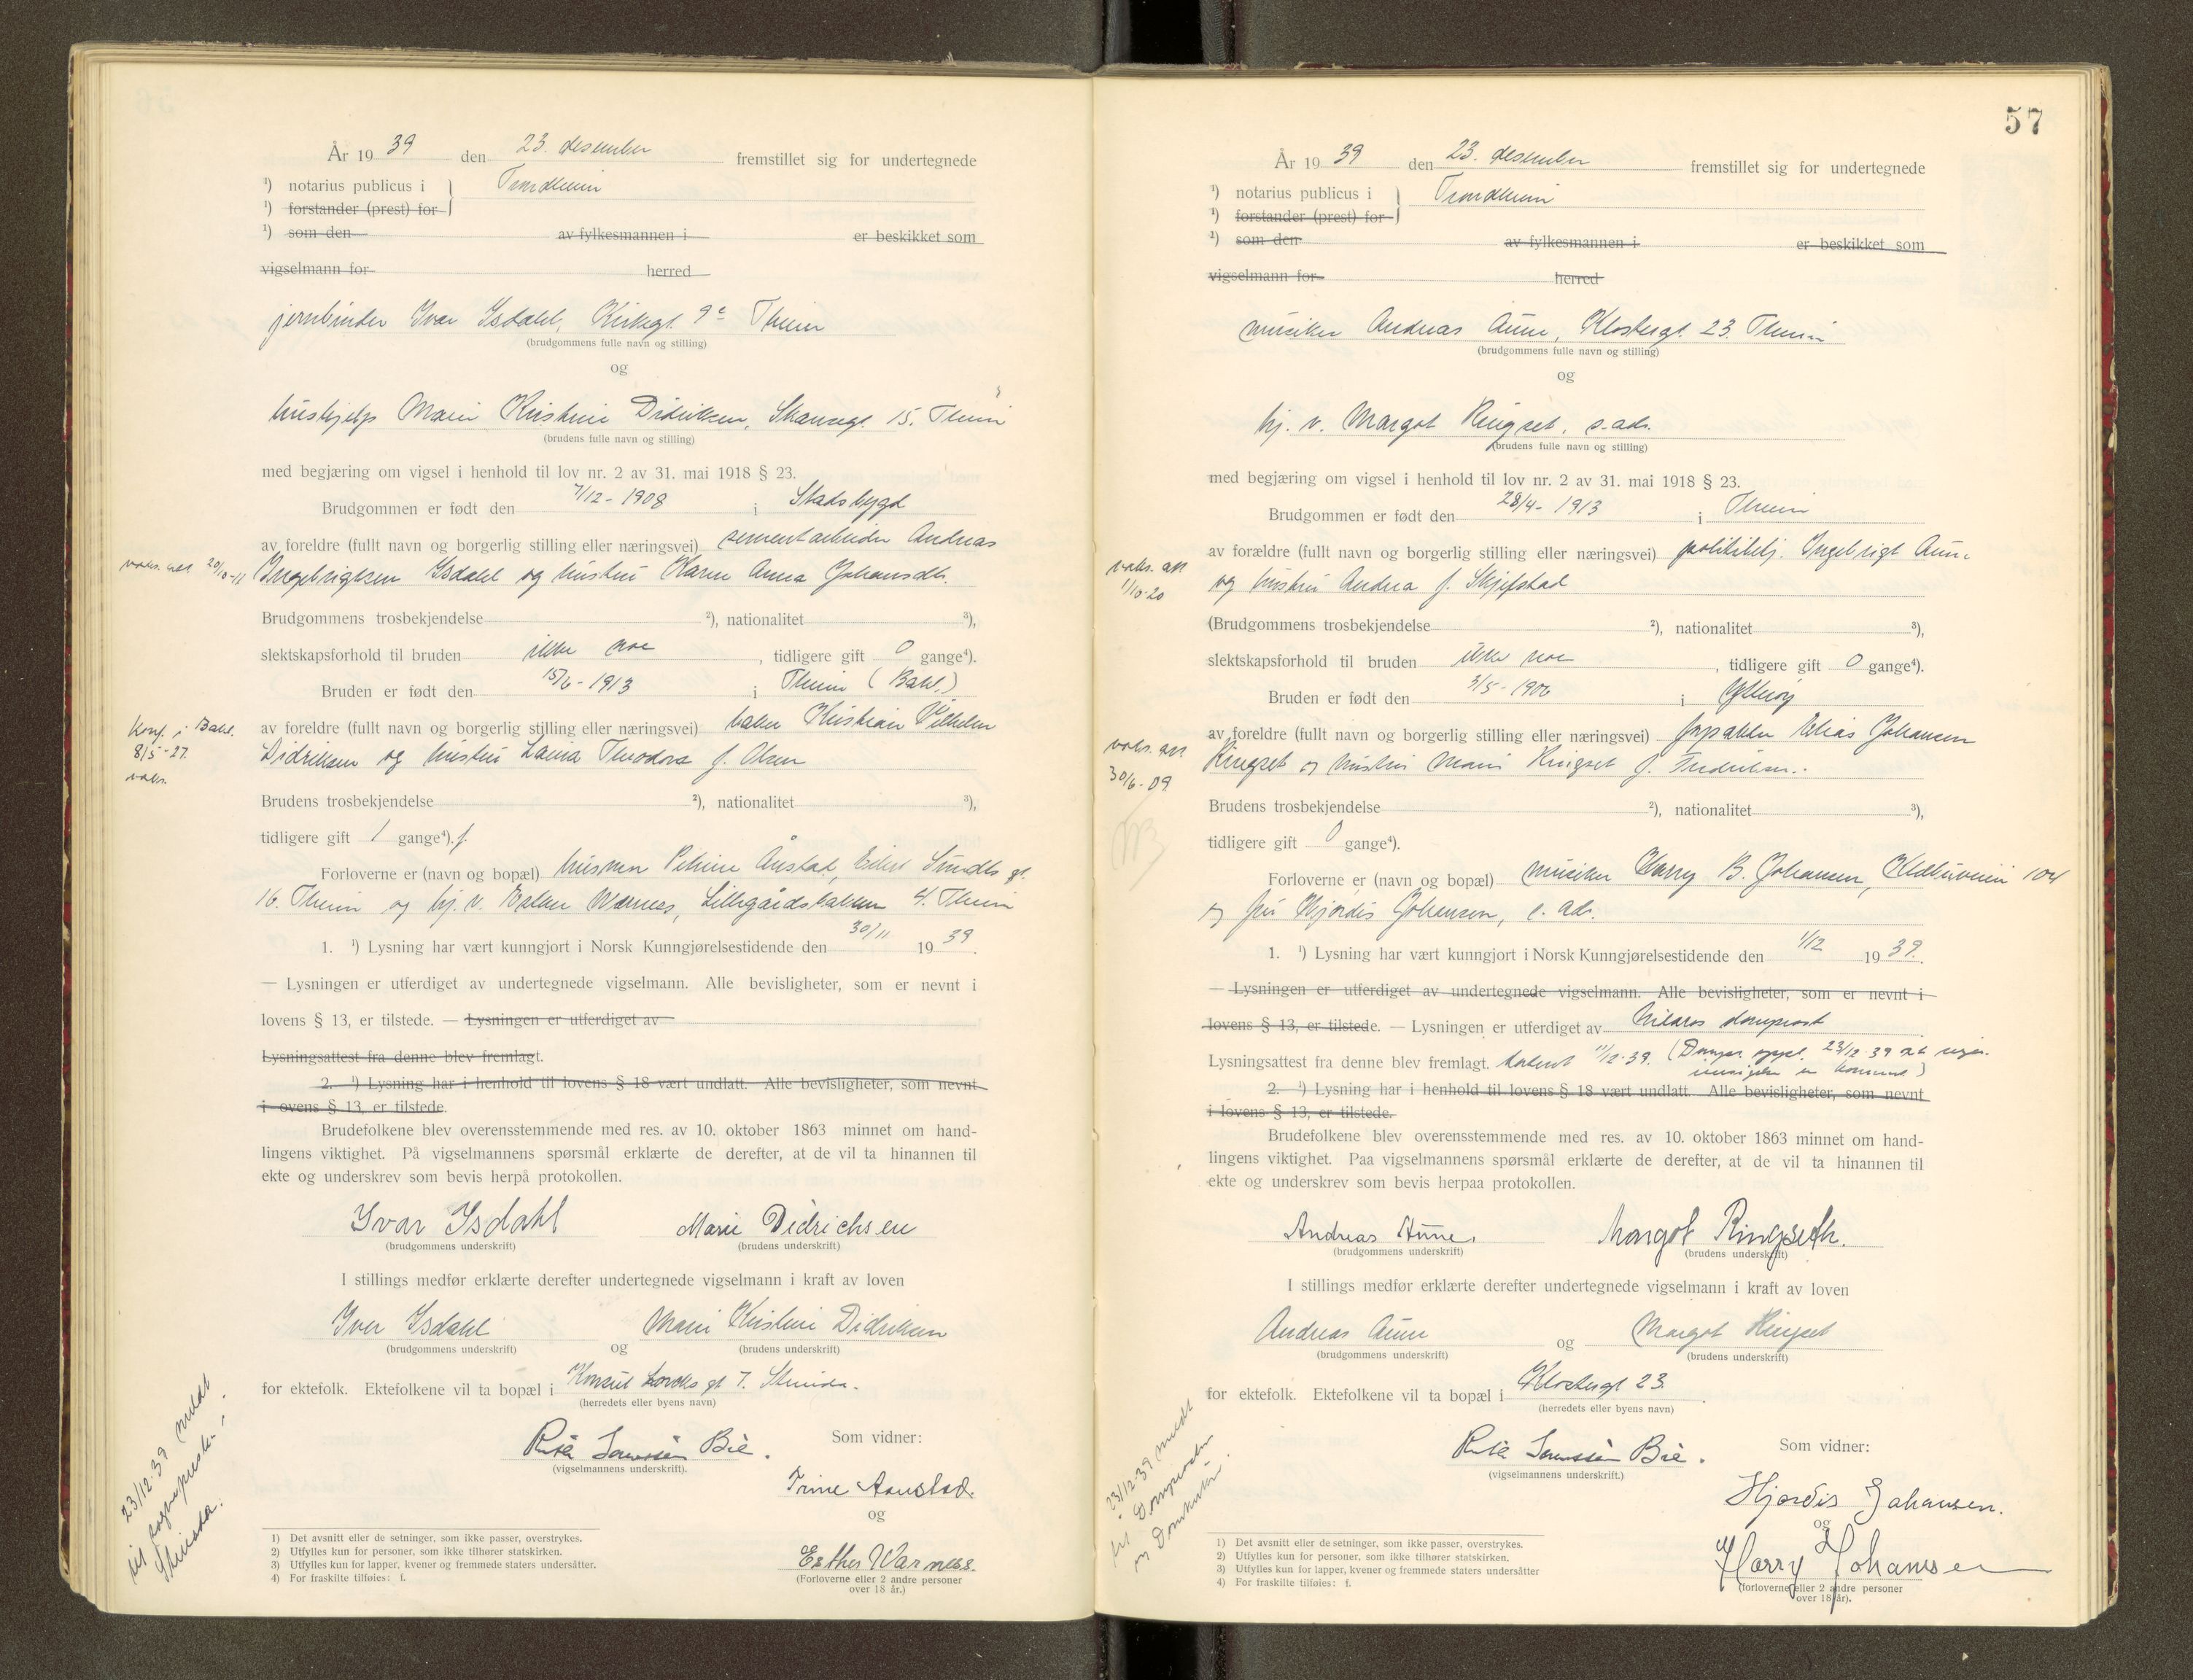 År 19 39 den 23. desember fremstillet sig for undertegnede
¹) notarius publicus i Trondheim
¹) forstander (prest) for
¹) som den av fylkesmannen i er beskikket som
vigselmann for herred
jernbinder Ivar Isdahl, Kirkegt. 9c Theim
(brudgommens fulle navn og stilling)
og
hushjelp Marie Kristine Didriksen, Skansegt. 15. Theim
(brudens fulle navn og stilling)
med begjæring om vigsel i henhold til lov nr. 2 av 31. mai 1918 § 23.
Brudgommen er født den 7/12 - 1908 i Stadsbygd
av foreldre (fullt navn og borgerlig stilling eller næringsvei) sementarbeider Andreas
vaks. att. 20/10-11 Ingebrigtsen Isdahl og hustru Karen Anna Johansdtr.
Brudgommens trosbekjendelse ²), nationalitet ³),
slektskapsforhold til bruden ikke noe, tidligere gift 0 gange⁴).
Bruden er født den 15/6 - 1913 i Theim (Bakl.)
Konf. i Bakl.
8/5-27.
vaks.
av foreldre (fullt navn og borgerlig stilling eller næringsvei) baker Kristian Vilhelm
Didriksen og hustru Laura Theodora f. Olsen
Brudens trosbekjendelse ²), nationalitet ³),
tidligere gift 1 gange⁴). f.
Forloverne er (navn og bopæl) husmor Petrine Aunstad, Eilert Sundts gt.
16. Theim og hj. v. Ester Warness, Lillegårdsbakken 4. Theim
1. ¹) Lysning har vært kunngjort i Norsk Kunngjørelsestidende den 30/11 19 39.
— Lysningen er utferdiget av undertegnede vigselmann. Alle bevisligheter, som er nevnt i
lovens § 13, er tilstede. — Lysningen er utferdiget av
Lysningsattest fra denne blev fremlagt.
2. ¹) Lysning har i henhold til lovens § 18 vært undlatt. Alle bevisligheter, som nevnt
i ovens § 13, er tilstede.
Brudefolkene blev overensstemmende med res. av 10. oktober 1863 minnet om hand-
lingens viktighet. På vigselmannens spørsmål erklærte de derefter, at de vil ta hinannen til
ekte og underskrev som bevis herpå protokollen.
Ivar Isdahl Marie Didrichsen
(brudgommens underskrift) (brudens underskrift)
I stillings medfør erklærte derefter undertegnede vigselmann i kraft av loven
Ivar Isdahl og Marie Kristine Didriksen
(brudgommens underskrift) (brudens underskrift)
for ektefolk. Ektefolkene vil ta bopæl i Konsul Lorcks gt 7. Strinda.
(herredets eller byens navn)
23/12-39 meldt
til sognepresten i
Strinda.
Bie.
(vigselmannens underskrift).
Som vidner:
Trine Aunstad.
og
Esther Warness.
(Forloverne eller 2 andre personer
over 18 år.)
1) Det avsnitt eller de setninger, som ikke passer, overstrykes.
2) Utfylles kun for personer, som ikke tilhører statskirken.
3) Utfylles kun for lapper, kvener og fremmede staters undersåtter.
4) For fraskilte tilføies: f.
57
År 19 39 den 23. desember fremstillet sig for undertegnede
¹) notarius publicus i Trondheim
¹) forstander (prest) for
¹) som den av fylkesmannen i er beskikket som
vigselmann for herred
musiker Andreas Aune, Klostergt. 23. Theim
(brudgommens fulle navn og stilling)
og
hj. v. Margot Ringset, s. ads.
(brudens fulle navn og stilling)
med begjæring om vigsel i henhold til lov nr. 2 av 31. mai 1918 § 23.
Brudgommen er født den 28/4 - 1913 i Theim
av forældre (fullt navn og borgerlig stilling eller næringsvei) politibtj. Ingebrigt Aune
vaks. att
1/10-20
og hustru Andrea f. Skjefstad
(Brudgommens trosbekjendelse ²), nationalitet ³),
slektskapsforhold til bruden ikke noe, tidligere gift 0 gange⁴).
Bruden er født den 3/5 - 1906 i Ytterøy
av foreldre (fullt navn og borgerlig stilling eller næringsvei) Elias Johansen
vaks. att
30/6-09
Ringset og hustru Marie Ringset f. Fredriksen.
Brudens trosbekjendelse ²), nationalitet ³),
tidligere gift 0 gange⁴).
Forloverne er (navn og bopæl) musiker Harry B. Johansen, 104
og fru Hjørdis Johansen, s. ads.
1. ¹) Lysning har vært kunngjort i Norsk Kunngjørelsestidende den 1/12 19 39.
— Lysningen er utferdiget av undertegnede vigselmann. Alle bevisligheter, som er nevnt i
lovens § 13, er tilstede. — Lysningen er utferdiget av Nidaros domprost
Lysningsattest fra denne blev fremlagt. datert 11/12-39. (Dompr. oppl. 23/12-39 at ingen
innsigelse er kommet)
2. ¹) Lysning har i henhold til lovens § 18 vært undlatt. Alle bevisligheter, som nevnt
i lovens § 13, er tilstede.
Brudefolkene blev overensstemmende med res. av 10. oktober 1863 minnet om hand-
lingens viktighet. Paa vigselmannens spørsmål erklærte de derefter, at de vil ta hinannen til
ekte og underskrev som bevis herpaa protokollen.
Andreas Aune. Margot Ringseth.
(brudgommens underskrift) (brudens underskrift)
I stillings medfør erklærte derefter undertegnede vigselmann i kraft av loven
Andreas Aune og Margot Ringset
(brudgommens underskrift) (brudens underskrift)
for ektefolk. Ektefolkene vil ta bopæl i Klostergt 23.
(herredets eller byens navn)
23/12-39 meldt
til Domprosten
og Domkirken.
Bie.
(vigselmannens underskrift.)
Som vidner:
Hjørdis Johansen.
og
Harry Johansen
(forloverne eller 2 andre personer
over 18 år).
1) Det avsnitt eller de setninger, som ikke passer, overstrykes.
2) Utfylles kun for personer, som ikke tilhører statskirken.
3) Utfylles kun for lapper, kvener og fremmede staters undersåtter
4) For fraskilte tilføies: f.